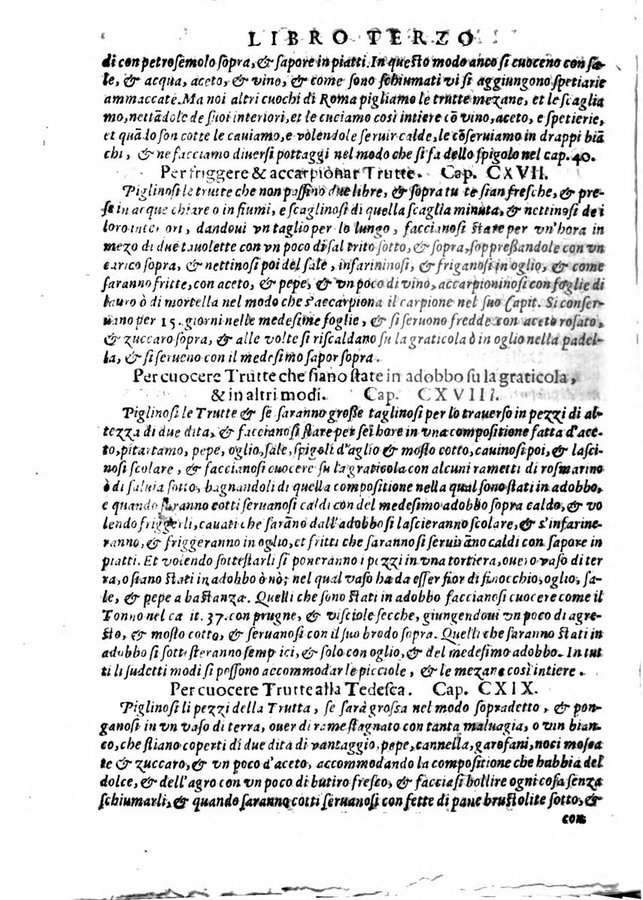 LIBRO TERZO
di con petrosemolo sopra, & sapore in piatti. In questo modo anco si cuoceno con sa-
le, & acqua, aceto, & vino, & come sono schiumati vi si aggiungono spetiarie
ammaccate. Ma noi altri cuochi di Roma pigliamo le trutte mezane, et le scaglia
mo, nettādole de suoi interiori, et le cuciamo così intiere cō vino, aceto, e spetierie,
et quādo son cotte le cauiamo, e volendole seruir calde, le cōseruiamo in drappi biā
chi, & ne facciamo diuersi pottaggi nel modo che si fa dello spigolo nel cap. 40.
Per friggere & accarpionar Trutte. Cap. CXVII.
Piglinosi le trutte che non passino due libre, & sopra tu te sian fresche, & pre-
se in acque chiare o in fiumi, e scaglinosi di quella scaglia minuta, & nettinosi de i
loro inter ori, dandoui vn taglio per lo lungo, faccianosi stare per vn'hora in
mezo di due tauolette con vn poco di sal trito sotto, & sopra, soppreßandole con vn
carico sopra, & nettinosi poi del sale, infarininosi, & friganosi in oglio, & come
saranno fritte, con aceto, & pepe, & vn poco di vino, accarpioninosi con foglie di
lauro ò di mortella nel modo che s'accarpiona il carpione nel suo Capit. Si conser-
uano per 15. giorni nelle medesime foglie, & si seruono fredde con aceto rosato,
& zuccaro sopra, & alle volte si riscaldano su la graticola ò in oglio nella padel-
la, & si serueno con il medesimo sapor sopra.
Per cuocere Trutte che siano state in adobbo su la graticola,
& in altri modi. Cap. CXVIII.
Piglinosi le Trutte & se saranno große taglinosi per lo trauerso in pezzi di al-
tezza di due dita, & faccianosi stare per sei hore in vna compositione fatta d'ace-
to, pitartamo, pepe, oglio, sale, spigoli d'aglio & mosto cotto, cauinosi poi, & lasci-
nosi scolare, & faccianosi cuocere su la graticola con alcuni rametti di rosmarino
ò di saluia sotto, bagnandoli di quella compositione nella qual sono stati in adobbo,
e quando saranno cotti seruanosi caldi con del medesimo adobbo sopra caldo, & vo
lendo friggerli, cauati che sarāno dall'adobbo si lascieranno scolare, & s'infarine-
ranno, & friggeranno in oglio, et fritti che saranno si seruirāno caldi con sapore in
piatti. Et volendo sottestarli si poneranno i pezzi in vna tortiera, ouero vaso di ter
ra, o siano stati in adobbo ò nò; nel qual vaso ha da esser fior di finocchio, oglio, sa-
le, & pepe a bastanza. Quelli che sono stati in adobbo faccianosi cuocere come il
Tonno nel ca it. 37. con prugne, & visciole secche, giungendoui vn poco di agre-
sto, & mosto cotto, & seruanosi con il suo brodo sopra. Quelli che saranno stati in
adobbo si sottesteranno semp ici, & solo con oglio, & del medesimo adobbo. In tut
ti li sudetti modi si possono accommodar le picciole, & le mezane così intiere.
Per cuocere Trutte alla Tedesca. Cap. CXIX.
Piglinosi li pezzi della Trutta, se sarà grossa nel modo sopradetto, & pon-
ganosi in vn vaso di terra, ouer di rame stagnato con tanta maluagia, o vin bian-
co, che stiano coperti di due dita di vantaggio, pepe, cannella, garofani, noci mosca
te & zuccaro, & vn poco d'aceto, accommodando la compositione che habbia del
dolce, & dell'agro con vn poco di butiro fresco, & facciasi bollire ogni cosa senza
schiumarli, & quando saranno cotti seruanosi con fette di pane brustolite sotto, &
con